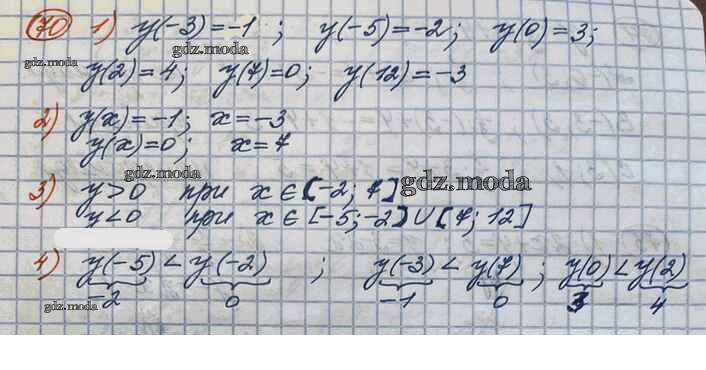 70 1) y(-3)=-1; y(-5)=-2; y(0)=3;
gdz.moda
gdz.moda
y(2)=4; y(7)=0; y(12)=-3
2) y(x)=-1; x=-3
y(x)=0; x=7
gdz.moda gdz.moda
3) y>0 при x∈[-2; 7]
y<0 при x∈[-5;-2]∪[7; 12]
4) y(-5)<y(-2) ; y(-3)<y(7) ; y(0)<y(2)
-2 0 -1 0 3 4
gdz.moda